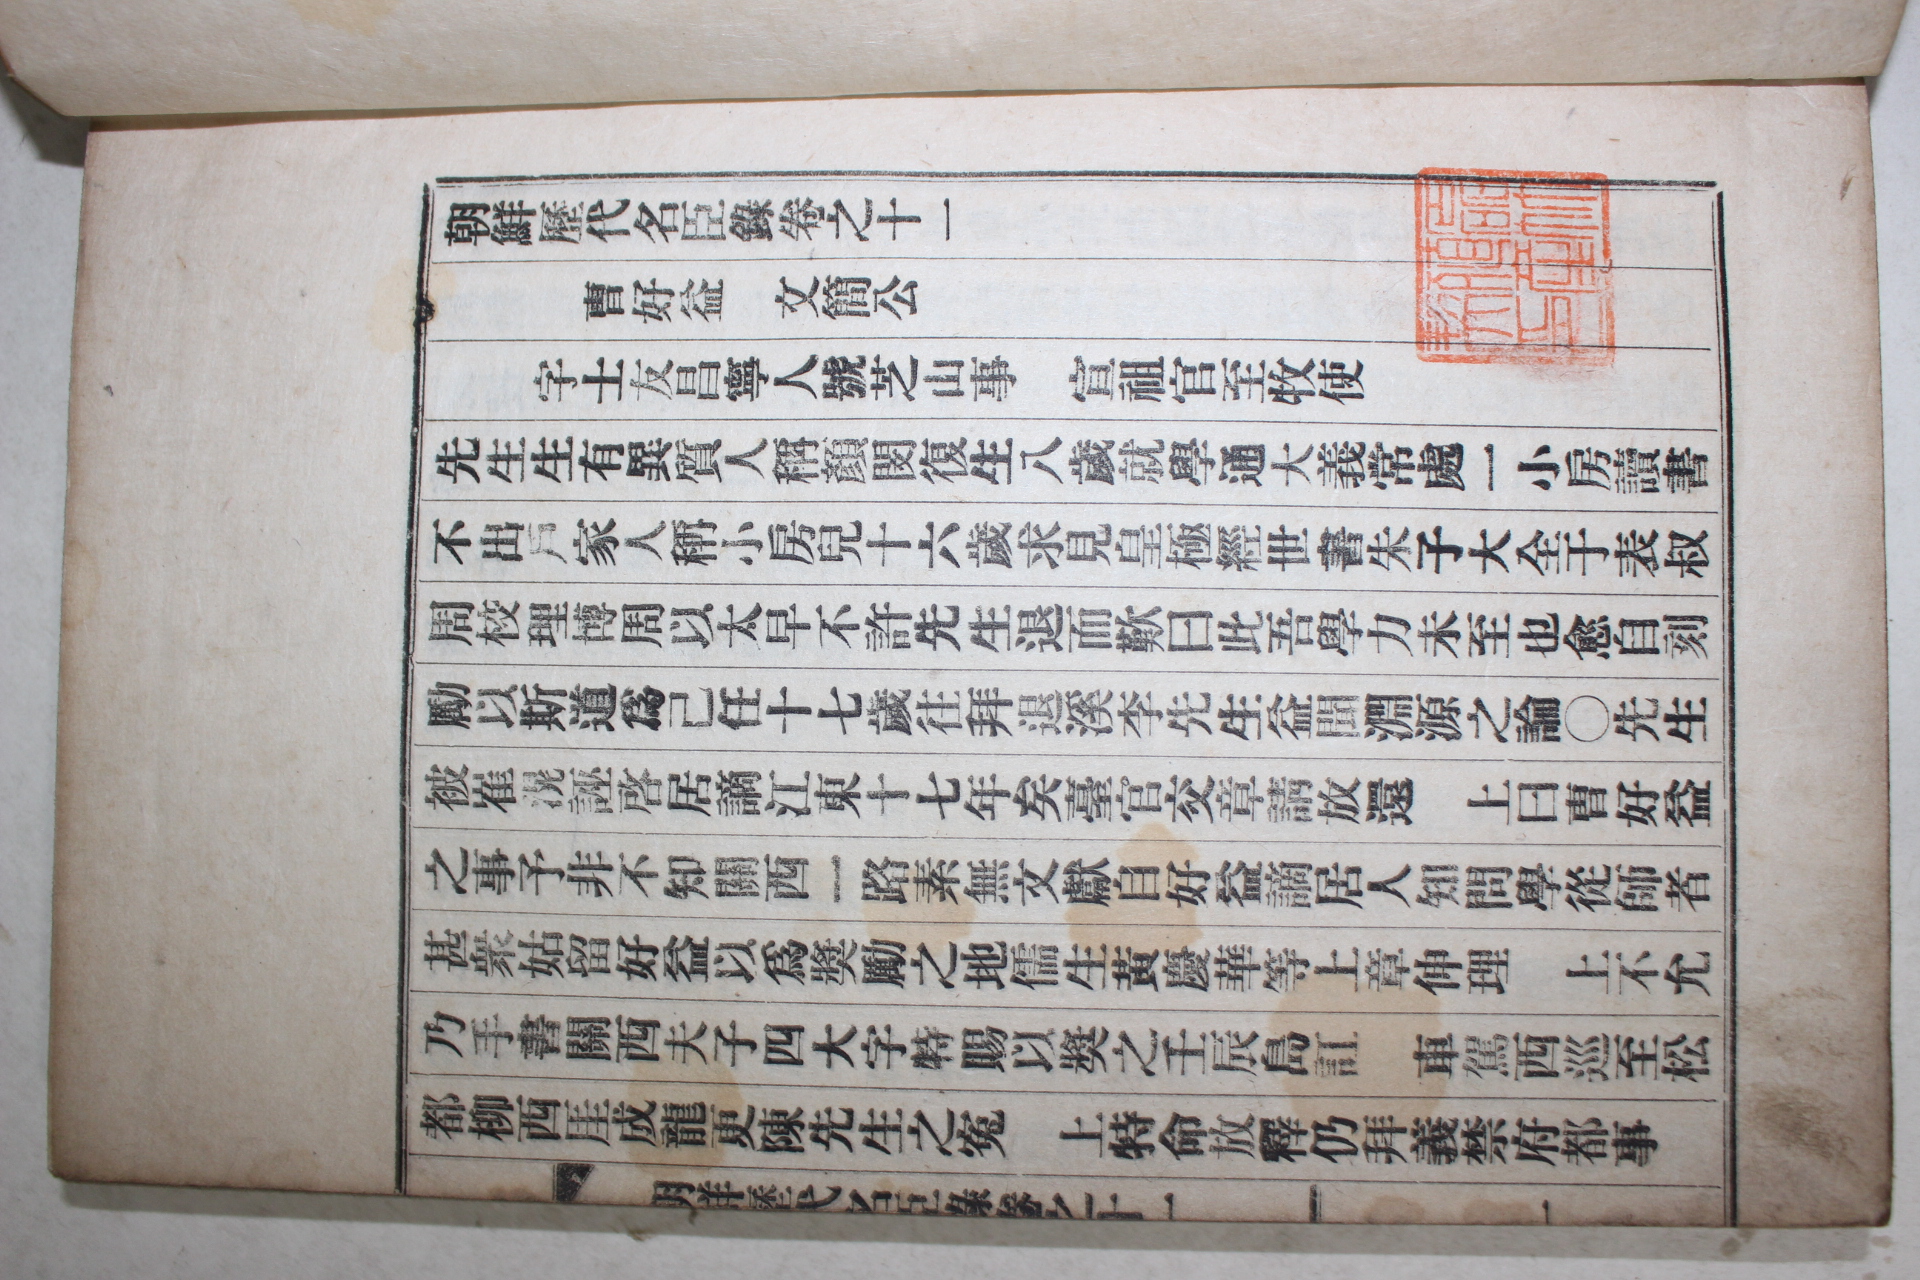 朝鮮歷代名臣錄卷之十一
曺好益　文簡公
字士友昌寧人號芝山事　宣祖官至牧使
先生生有異質人稱顔閔復生八歲就學通大義常處一小房讀書
不出戶家人稱小房兒十六歲求見皇極經世書朱子大全于表叔
周校理博周以太早不許先生退而歎曰此吾學力未至也愈自刻
勵以斯道爲己任十七歲往拜退溪李先生益聞淵源之論〇先生
被崔滉誣啓居謫江東十七年矣臺官交章請放還　上曰曺好益
之事予非不知關西一路素無文獻自好益謫居人知問學從師者
甚衆姑留好益以爲奬勵之地儒生黃慶華等上章伸理　上不允
乃手書關西夫子四大字特賜以奬之壬辰島訌　車駕西巡至松
都柳西厓成龍更陳先生之寃　上特命放釋仍拜義禁府都事
朝鮮歷代名臣錄卷之十一
一